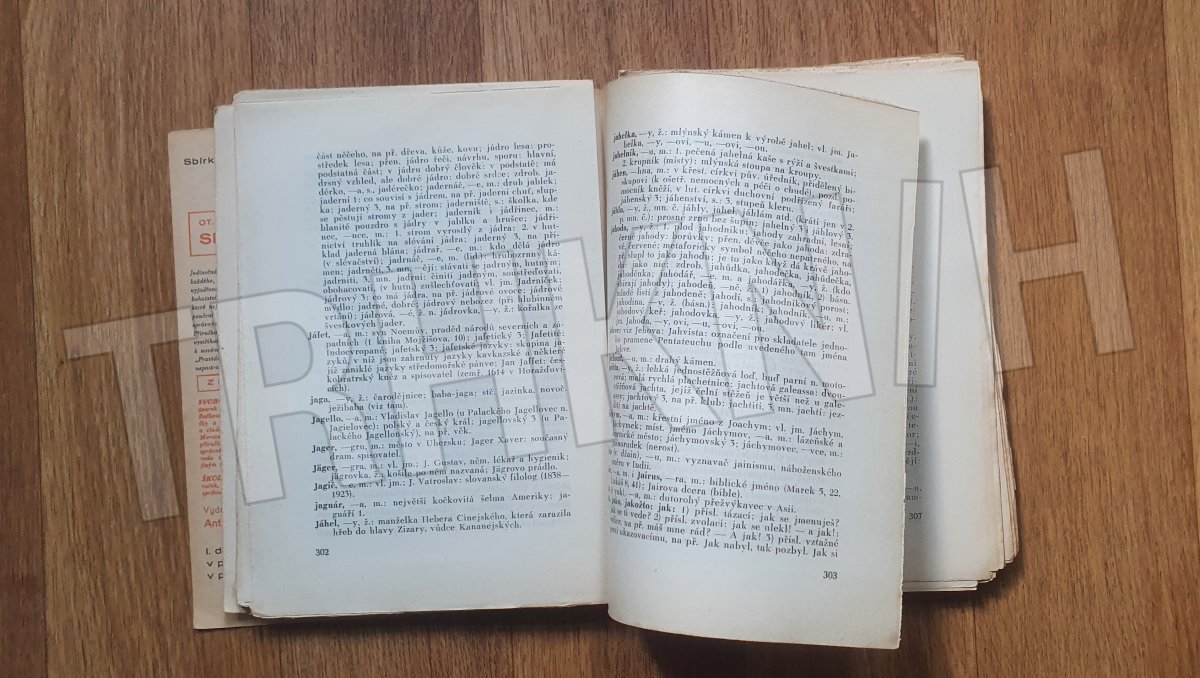 část něčeho, na př. dřeva, kůže, kovu; jádro lesa: pro-
středek lesa; přen. jádro řeči, návrhu, sporu: hlavní,
podstatná část; v jádru dobrý člověk: v podstatě; má
drsný vzhled, ale dobré jádro: dobré srdce; zdrob. ja-
dérko, —a, s., jadérečko; jadernáč, —e, m.: druh jablek;
jaderní 1: co souvisí s jádrem, na př. jaderní chuť, slup-
ka; jaderný 3, na př. strom; jaderniště, s.: školka, kde
se pěstují stromy z jader; jaderník i jádřinec, m.:
blanité pouzdro s jádry v jablku a hrušce; jádři-
nec, —nce, m.: 1. strom vyrostlý z jádra; 2. v hut-
nictví truhlík na slévání jádra; jaderný 3, na pří-
klad jaderná blána; jádrař, —e, m.: kdo dělá jádro
(v slévačství); jadrnáč, —e, m. (lid.): hrubozrnný ká-
men; jadrněti, 3. mn. —ějí: stávati se jadrným, hutným;
jadrniti, 3. mn. jadrní: činiti jadrným, soustřeďovati,
obohacovati, (v hutn.) zušlechťovati; vl. jm. Jadrníček;
jádrový 3: co má jádra, na př. jádrové ovoce; jádrové
mýdlo: jadrné, dobré; jádrový nebozez (při hlubinném
vrtání); jádrová, —é, ž. n. jádrovka, —y, ž.: kořalka ze
švestkových jader.
Jáfet, —a, m.: syn Noemův, praděd národů severních a zá-
padních (1 kniha Mojžíšova, 10); jafetický 3; Jafetité:
Indoevropané; jafetský 3; jafetské jazyky: skupina ja-
zyků, v níž jsou zahrnuty jazyky kavkazské a některé
již zaniklé jazyky středomořské pánve; Jan Jaffet: čes-
kobratrský kněz a spisovatel (zemř. 1614 v Horažďovi-
cích).
jaga, —y, ž.: čarodějnice; baba-jaga: stč. jazinka, novoč.
ježibaba (viz tam).
Jagello, —a, m.: Vladislav Jagello (u Palackého Jagellovec n.
Jagielovec); polský a český král; jagellovský 3 (u Pa-
lackého Jagellonský), na př. věk.
Jager, —gru, m.: město v Uhersku; Jager Xaver: současný
dram. spisovatel.
Jäger, —gra, m.: vl. jm.: J. Gustav, něm. lékař a hygienik;
jägrovka, ž.: košile po něm nazvaná; Jägrovo prádlo.
Jagić, —e, m.: vl. jm.: J. Vatroslav: slovanský filolog (1838—
1923).
jaguár, —a, m.: největší kočkovitá šelma Ameriky; ja-
guáří 1.
Jáhel, —y, ž.: manželka Hebera Cinejského, která zarazila
hřeb do hlavy Zizary, vůdce Kananejských.
302
jahelka, —y, ž.: mlýnský kámen k výrobě jahel; vl. jm. Ja-
helka, —y, —ovi, —u, —ovi, —ou.
jahelník, —u, m.: 1. pečená jahelná kaše s rýží a švestkami;
2. krupník (místy); mlýnská stoupa na kroupy.
jáhen, —hna, m.: v křest. církvi pův. úředník, přidělený bi-
skupovi (k ošetř. nemocných a péči o chudé), pozd. po-
mocník kněží, v lut. církvi duchovní podřízený faráři;
jáhenský 3; jáhenství, s.: 3. stupeň kleru.
jáhlo, —y, ž., mn. č. jáhly, jahel, jáhlám atd. (krátí jen v 2.
p. mn. č.): prosné zrno bez šupin; jahelný 3; jáhlový 3.
jahoda, —y, ž.: 1. plod jahodníku; jahody zahradní, lesní;
černé jahody: borůvky; přen. děvče jako jahoda: zdra-
vé, červené; metaforický symbol něčeho nepatrného, na
př. slupl to jako jahodu: je to jako když dá krávě jaho-
du: jako nic; zdrob. jahůdka, jahodečka, jahůdečka,
jahoděnka; jahodář, —e, m. a jahodářka, —y, ž. (kdo
sbírají jahody); jahodeň, —ně, ž.: 1) jahodník, 2) básn.
mladé listí z jahodení; jahodí, s.: jahodníkový porost;
jahodina, —y, ž. (básn.): jahodník; jahodník, —u, m.:
jahodový keř; jahodovka, —y, ž.: jahodový likér; vl.
jm. Jahoda, —y, ovi, —u, —ovi, —ou.
viz Jehova; Jahvista: označení pro skladatele jedno-
ho pramene Pentateuchu podle uvedeného tam jména
—u, m.: drahý kámen.
—y, ž.: lehká jednostěžňová loď, buď parní n. moto-
rová; malá rychlá plachetnice; jachtová galeassa: dvou-
stěžňová jachta, jejíž čelní stěžeň je větší než u gale-
assy; jachtový 3, na př. klub; jachtiti, 3. mn. jachtí: jez-
diti na jachtě.
—a, m.: křestní jméno z Joachym; vl. jm. Jáchym,
Jáchymek; míst. jméno Jáchymov, —a, m.: lázeňské a
hornické město; jáchymovský 3; jáchymovec, —vce, m.:
smolorudek (nerost).
(v. džain), —u, m.: vyznavač jainismu, náboženského
směru v Indii.
i Jairus, —ra, m.: biblické jméno (Marek 5, 22,
Lukáš 8, 41); Jairova dcera (bible).
jakl), —a, m.: dutorohý přežvýkavec v Asii.
jako, jakožto: jak: 1) přísl. tázací: jak se jmenuješ?
jak se ti vede? 2) přísl. zvolací: jak se ulekl! — a jak!;
na př. máš mne rád? — A jak! 3) přísl. vztažné
proti ukazovacímu, na př. Jak nabyl, tak pozbyl. Jak si
303
307
Sbírk
OT.
Jednotné
každého,
vyjadřov
bohatství
které n
poučení
správnýc
Příručka
vysvětlu
k novém
„Pravidl
nepostra
Z
SVOBO
ŠKOL
Vyda
Ant
I. d
v p
v p
TRHKNIH